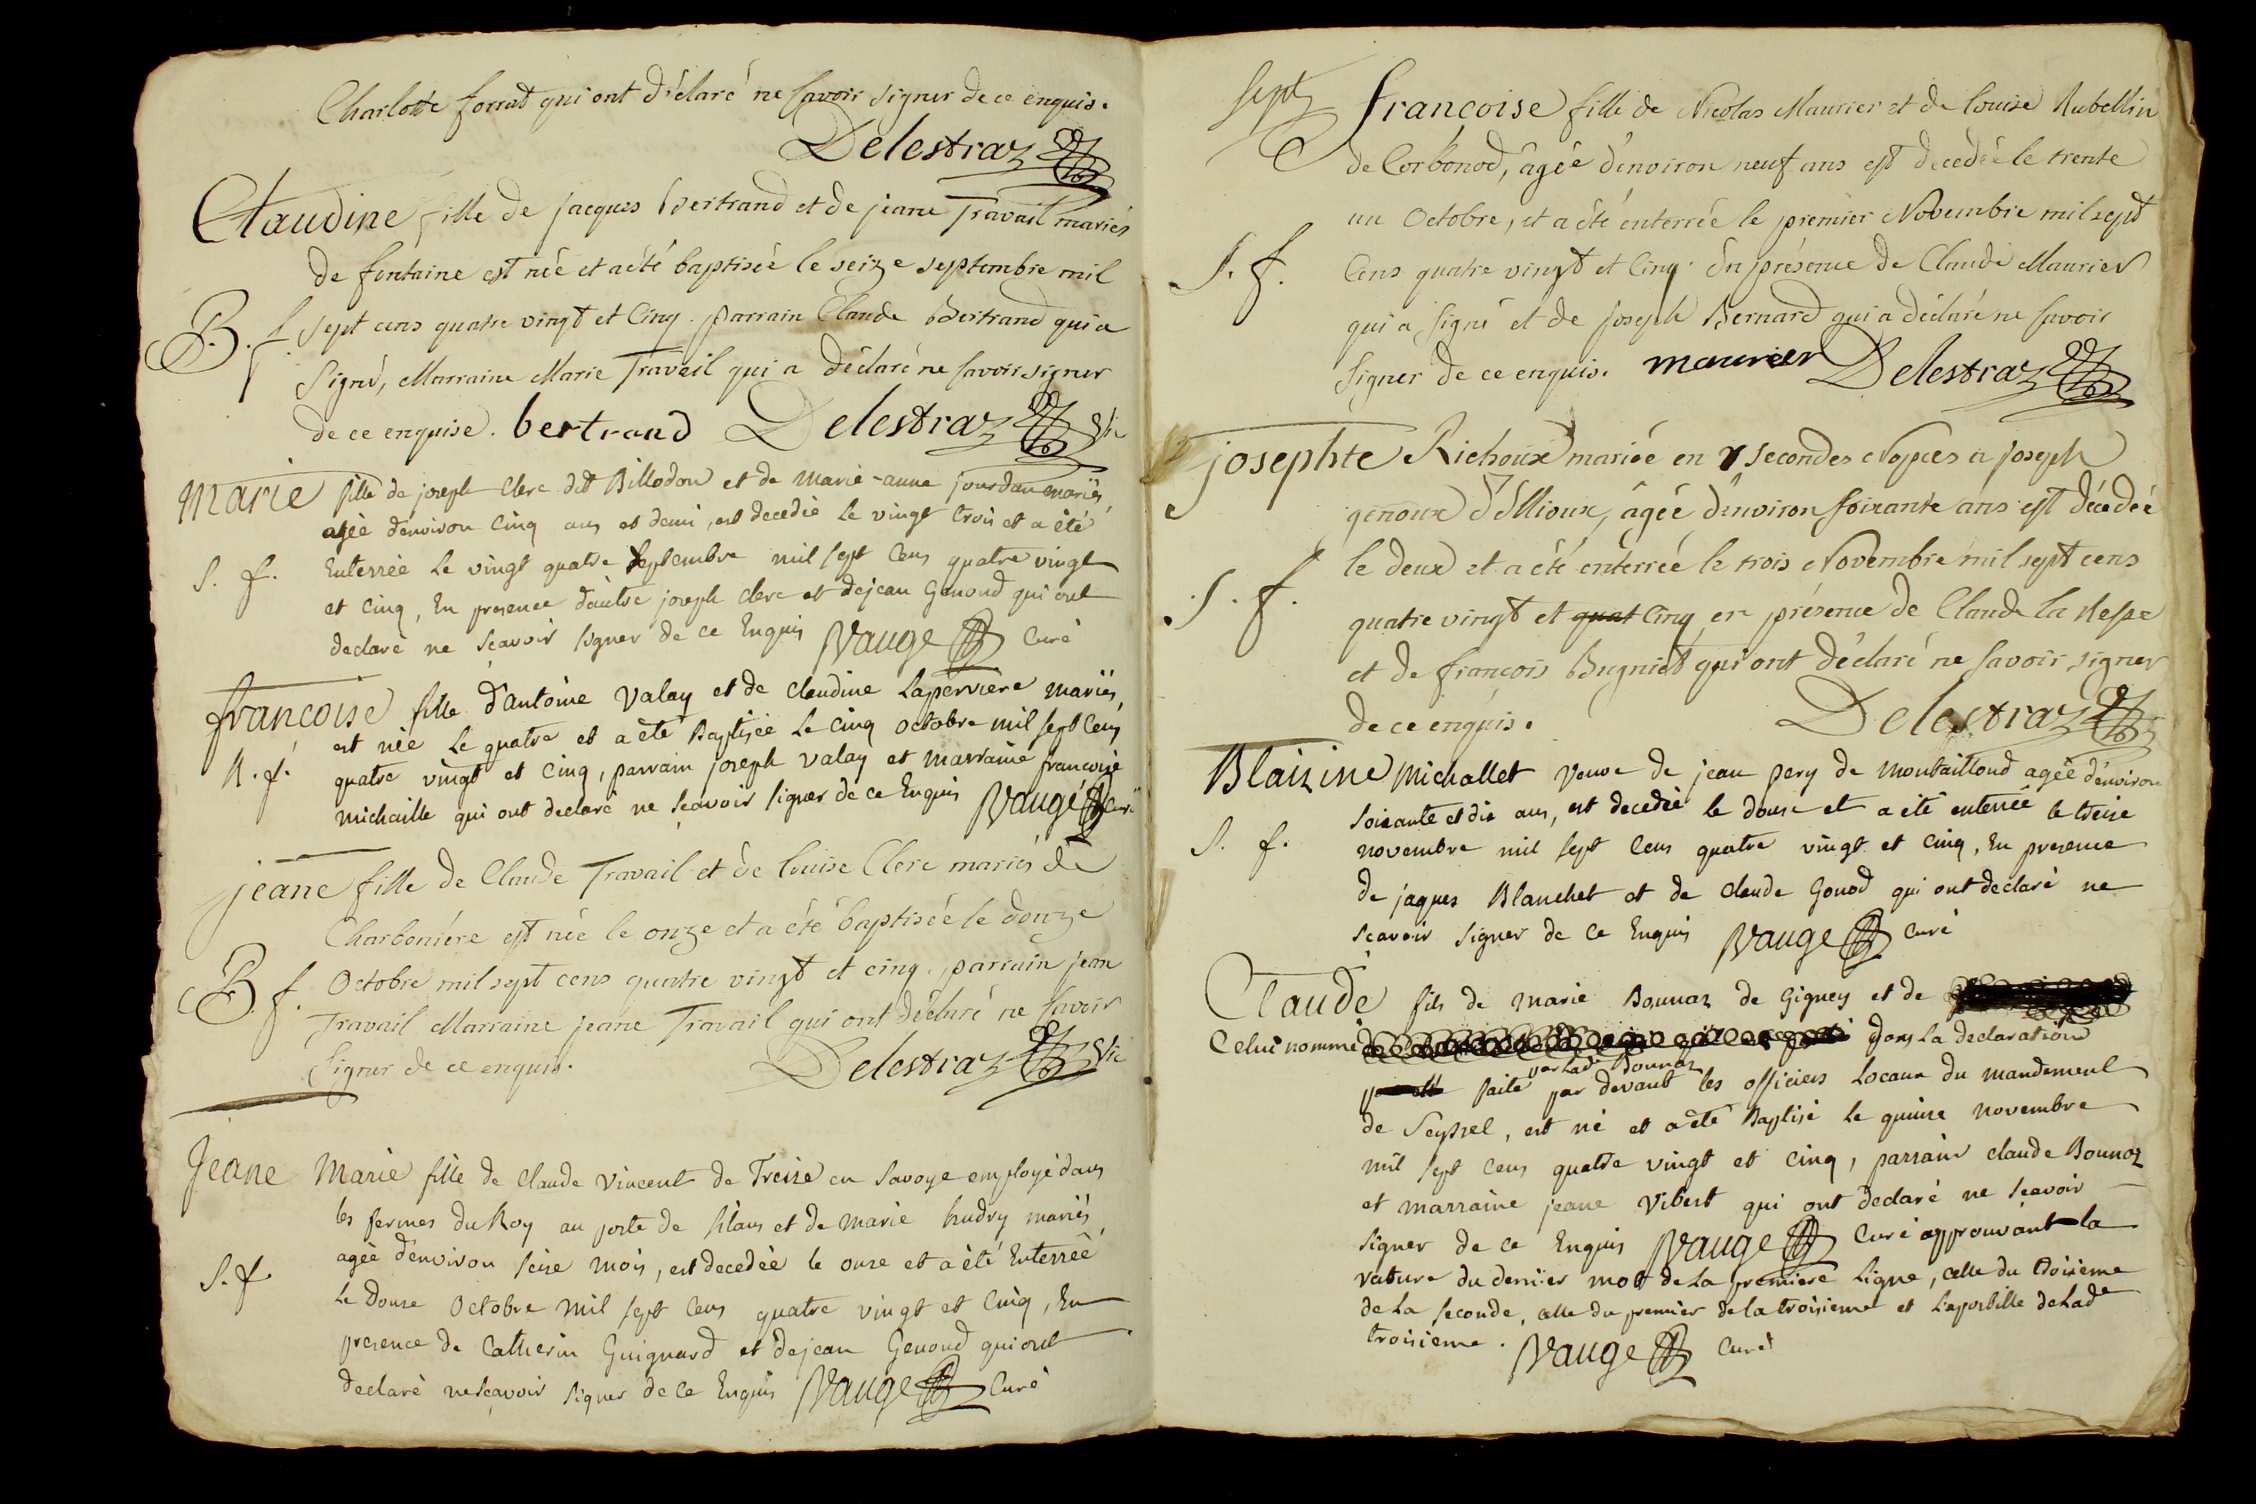 Charlotte forrat qui ont déclaré ne savoir signer de ce enquis.
Delestraz
Claudine fille de jacques Bertrand et de jeane Travail mariés
de fontaine est née et a été baptisée le seize septembre mil
B. f. sept cens quatre vingt et Cinq. parrain Claude Bertrand qui a
Signé, Marraine Marie Travail qui a déclaré ne savoir signer
de ce enquise. bertrand Delestraz Vic
Marie fille de joseph Clerc dit Billodon et de Marie-anne jourdan mariés,
agèe d'environ Cinq ans et demi, est decedèe Le vingt trois et a été
S. f. Enterrèe Le vingt quatre Septembre mil sept Cens quatre vingt
et Cinq, En presence d'autre joseph Clerc et de jean Genoud qui ont
declarè ne scavoir signer de Ce Enquis Vauge Curé
francoise fille d'antoine Valay et de Claudine Laperriere mariès,
est nèe Le quatre et a ètè Baptisèe Le Cinq octobre mil sept Cens
N. f. quatre vingt et Cinq, parrain joseph Valay et marraine francoise
michaille qui ont declarè ne sçavoir signer de Ce Enquis Vauge Curé
jeane fille de Claude Travail et de Louise Clerc mariés de
Charboniére est née le onze et a été baptisée le douze
B. f. Octobre mil sept cens quatre vingt et cinq. parrain jean
Travail Marraine jeane Travail qui ont déclaré ne savoir
Signer de ce enquis. Delestraz Vic
Jeane Marie fille de Claude Vincent de Treize en Savoye employé dans
les fermes du Roy au poste de Silans et de Marie hudry mariés,
agèe d'environ seise mois, est decedèe le onze et a ètè Enterrèe
S. f. Le Douze Octobre Mil sept Cens quatre vingt et Cinq, En
presence de Catherin Guignard et de jean Genoud qui ont
declarè ne sçavoir signer de Ce Enquis Vauge Curé
Sept
francoise fille de Nicolas Maurier et de Louise Rubellin
de Corbonod, âgée d'environ neuf ans est décedée le trente
un Octobre, et a été enterrée le premier Novembre mil sept
S. f. Cens quatre vingt et Cinq. En présence de Claude Maurier
qui a signé et de joseph Bernard qui a déclaré ne savoir
signer de ce enquis. maurier Delestraz
josephte Richoux mariée en secondes Nopces a joseph
genoux d'Ellioux, âgée d'environ soixante ans est décedée
le deux et a été enterrée le trois Novembre mil sept cens
S. f. quatre vingt et quat Cinq en présence de Claude la Responsable
et de françois Bugniet qui ont déclaré ne savoir signer
de ce enquis. Delestraz
Blaizine Michallet Veuve de jean pery de Montailloud agèe d'environ
soixante et dix ans, est decedèe le douse et a ètè enterrèe le treise
S. f. novembre mil sept Cens quatre vingt et Cinq, En presence
de jaques Blanchet et de Claude Gonod qui ont declarè ne
sçavoir signer de Ce Enquis Vauge Curé
Claude fils de Marie Bonnaz de Gigney et de
Celui nommé dans La declaration
faite par Lad. Bonnaz par devant les officiers Locaux du mandement
de Seyssel, est nè et a ètè Baptisè Le quinze novembre
mil sept Cens quatre vingt et Cinq, parrain Claude Bonnaz
et marraine jeane Vibert qui ont declarè ne scavoir
signer de Ce Enquis Vauge Curé approuvant la
rature du dernier mot de La premiere Ligne, celle du troisieme
de La seconde, celle du premier de la troisieme et L'apostille de Lad.e
troisieme. Vauge Curé